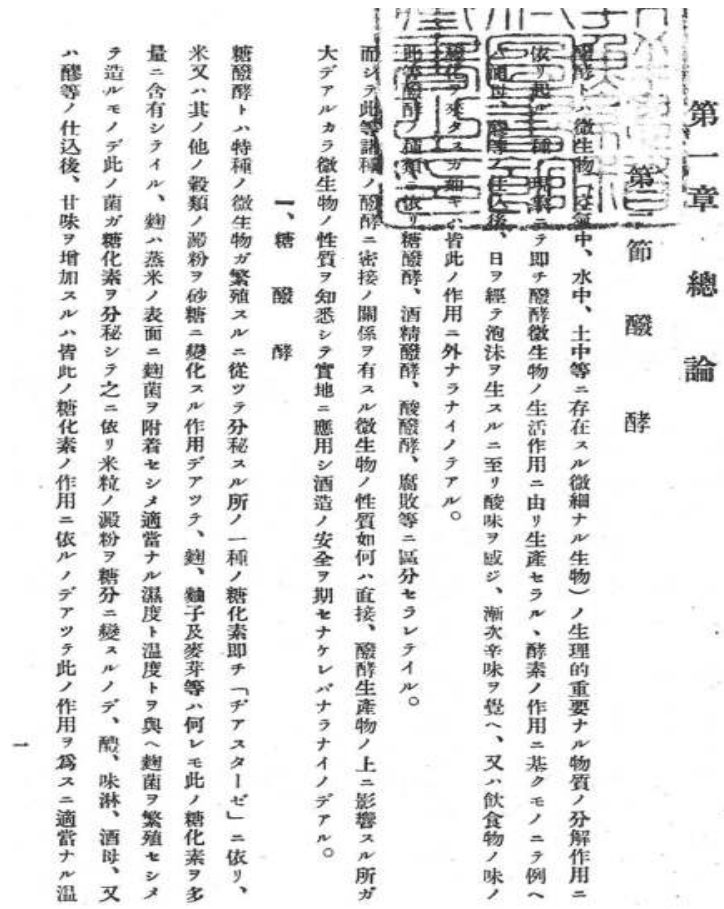 第一章　總論
第一節　醱酵
醱酵トハ微生物（空氣中、水中、土中等ニ存在スル微細ナル生物）ノ生理的重要ナル物質ノ分解作用ニ
依リ起ル一種ノ現象ニテ即チ醱酵微生物ノ生活作用ニ由リ生産セラルヽ酵素ノ作用ニ基クモノニテ例ヘ
酒母、醪等ノ仕込後、日ヲ經テ泡沫ヲ生スルニ至リ酸味ヲ感ジ、漸次辛味ヲ覺ヘ、又ハ飮食物ノ味ノ
變化ヲ來タスガ如キハ皆此ノ作用ニ外ナラナイノテアル。
此等醱酵ノ種類ニ依リ糖醱酵、酒精醱酵、酸醱酵、腐敗等ニ區分セラレテイル。
而シテ此等諸種ノ醱酵ニ密接ノ關係ヲ有スル微生物ノ性質如何ハ直接、醱酵生産物ノ上ニ影響スル所ガ
大デアルカラ微生物ノ性質ヲ知悉シテ實地ニ應用シ酒造ノ安全ヲ期セナケレバナラナイノデアル。
一、糖醱酵
糖醱酵トハ特種ノ微生物ガ繁殖スルニ從ツテ分秘スル所ノ一種ノ糖化素即チ「ヂアスターゼ」ニ依リ、
米又ハ其ノ他ノ穀類ノ澱粉ヲ砂糖ニ變化スル作用デアツテ、麹、麯子及麥芽等ハ何レモ此ノ糖化素ヲ多
量ニ含有シテイル、麹ハ蒸米ノ表面ニ麹菌ヲ附着セシメ適當ナル濕度ト温度トヲ與ヘ麹菌ヲ繁殖セシメ
テ造ルモノデ此ノ菌ガ糖化素ヲ分秘シテ之ニ依リ米粒ノ澱粉ヲ糖分ニ變スルノデ、醴、味淋、酒母、又
ハ醪等ノ仕込後、甘味ヲ增加スルハ皆此ノ糖化素ノ作用ニ依ルノデアツテ此ノ作用ヲ爲スニ適當ナル温
一